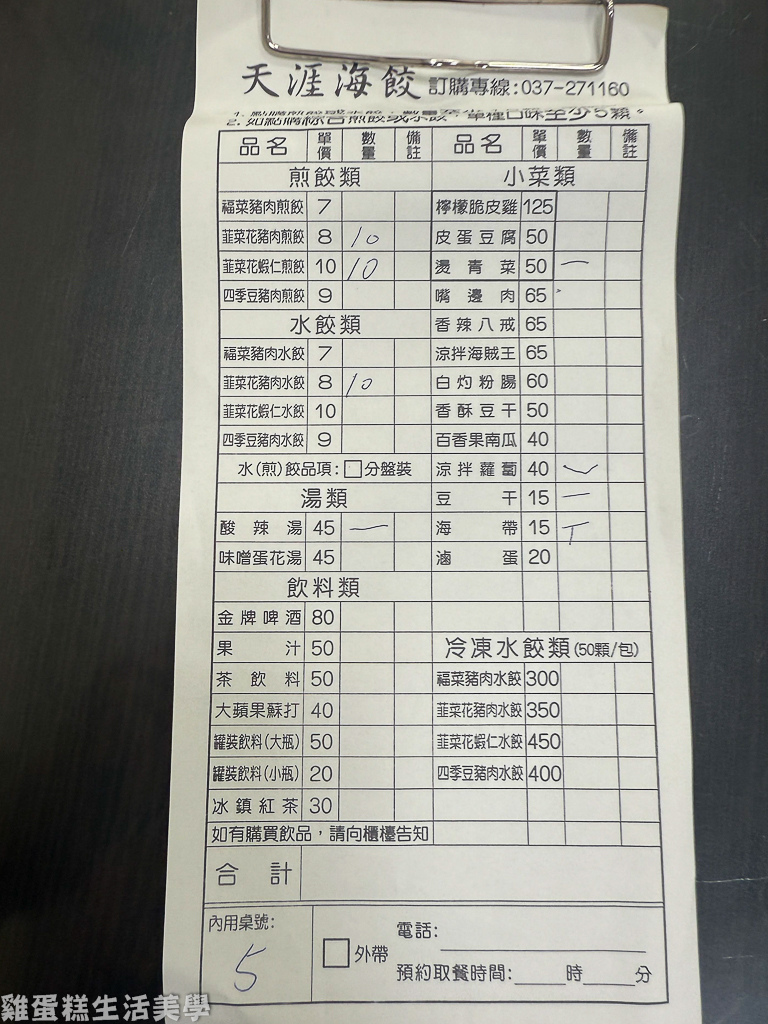 天涯海餃 訂購專線:037-271160
2. 如點購綜合煎餃或水餃,單種口味至少5顆。
品名 單價 數量 備註 品名 單價 數量 備註
煎餃類 小菜類
福菜豬肉煎餃 7 檸檬脆皮雞 125
韮菜花豬肉煎餃 8 10 皮蛋豆腐 50
韮菜花蝦仁煎餃 10 10 燙青菜 50 一
四季豆豬肉煎餃 9 嘴邊肉 65
水餃類 香辣八戒 65
福菜豬肉水餃 7 涼拌海賊王 65
韮菜花豬肉水餃 8 10 白灼粉腸 60
韮菜花蝦仁水餃 10 香酥豆干 50
四季豆豬肉水餃 9 百香果南瓜 40
水(煎)餃品項:□分盤裝 涼拌蘿蔔 40
湯類 豆干 15 一
酸辣湯 45 一 海帶 15
味噌蛋花湯 45 滷蛋 20
飲料類
金牌啤酒 80
果汁 50 冷凍水餃類(50顆/包)
茶飲料 50 福菜豬肉水餃 300
大蘋果蘇打 40 韮菜花豬肉水餃 350
罐裝飲料(大瓶) 50 韮菜花蝦仁水餃 450
罐裝飲料(小瓶) 20 四季豆豬肉水餃 400
冰鎮紅茶 30
如有購買飲品,請向櫃檯告知
合計
內用桌號: 5
□外帶
電話:
預約取餐時間: 時 分
雞蛋糕生活美學